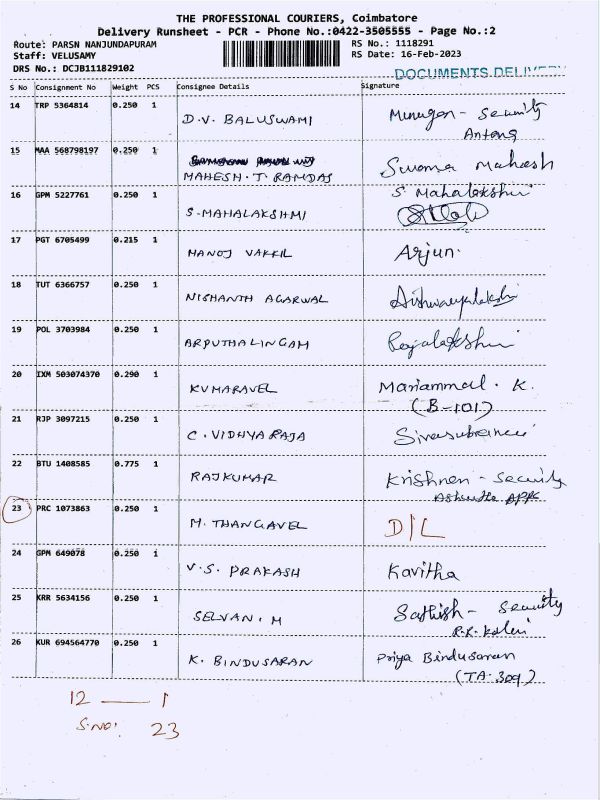 THE PROFESSIONAL COURIERS, Coimbatore
Delivery Runsheet - PCR - Phone No.:0422-3505555 - Page No.:2
Route: PARSN NANJUNDAPURAM RS No.: 1118291
Staff: VELUSAMY RS Date: 16-Feb-2023
DRS No.: DCJB111829102 DOCUMENTS DELIVERY
S No Consignment No Weight PCS Consignee Details Signature
14 TRP 5364814 0.250 1 D.V. BALUSWAMI Murugan - Security
15 MAA 568798197 0.250 1 MAHESH.T. RAMDAS Mahesh
16 GPM 5227761 0.250 1 S.MAHALAKSHMI S Mahalakshmi
17 PGT 6705499 0.215 1 MANOJ VAKKIL Arjun.
18 TUT 6366757 0.250 1 NISHANTH AGARWAL
19 POL 3703984 0.250 1 ARPUTHALINGAM Rajalakshmi
20 IXM 503074370 0.290 1 KUMARAVEL Mariammal. K.
(B-101)
21 RJP 3097215 0.250 1 C.VIDHYARAJA
22 BTU 1408585 0.775 1 RAJKUMAR Krishnan - Security
23 PRC 1073863 0.250 1 M.THANGAVEL D/L
24 GPM 649078 0.250 1 V.S. PRAKASH Kavitha
25 KRR 5634156 0.250 1 SELVAN.M Sathish - Security
26 KUR 694564770 0.250 1 K. BINDUSARAN Priya Bindusaran
(TA-309)
12 — 1
S.NO: 23